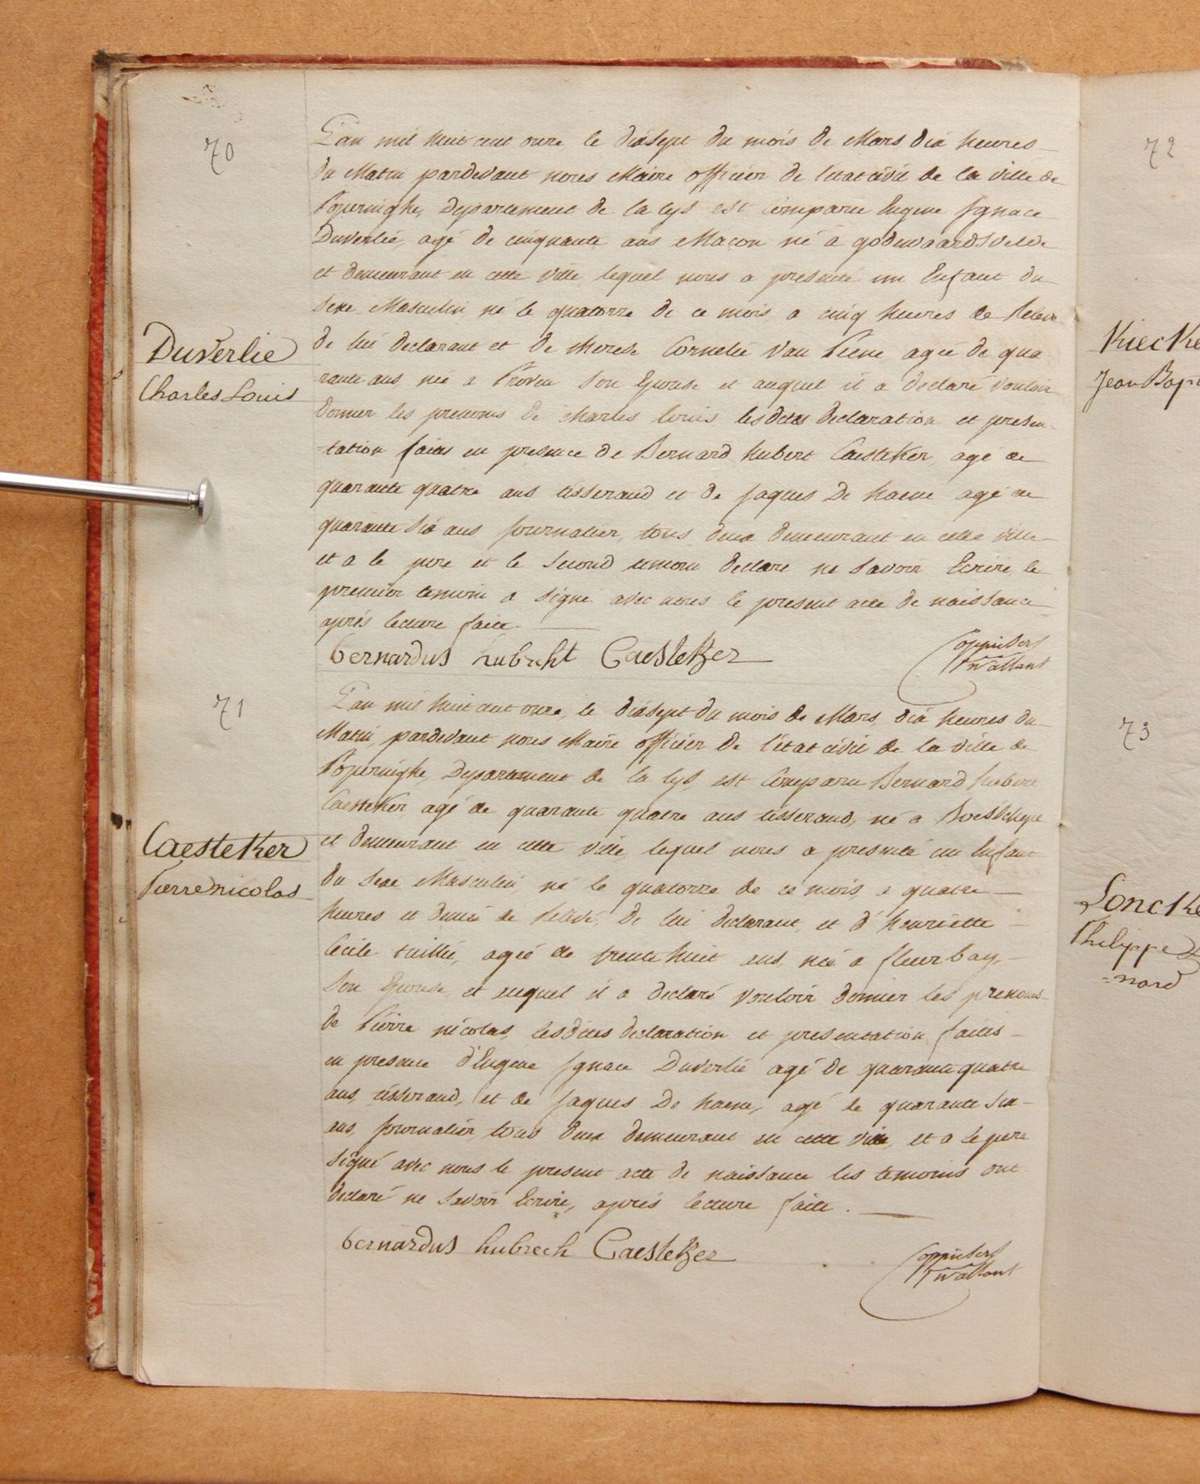 70
L'an mil huit cent onze le dixsept du mois de Mars dix heures
du Matin pardevant nous Maire officier de l'etat civil de la ville de
Poperinghe, Departement de la Lys est comparu Eugene Ignace
Duverlie, agé de cinquante ans Macon né à godewaardsvelde
et demeurant en cette ville, lequel nous a presenté un Enfant du
Sexe Masculin né le quatorze de ce mois a cinq heures de
de lui declarant et de therese Cornelie Van agée de qua
rante ans, née a Proven Son Epouse et auquel il a declaré vouloir
donner les prenoms de Charles Louis lesdites declaration et presen-
-tation faites en presence de Bernard hubert Caesteker agé de
quarante quatre ans tisserand et de Jaques De haene agé de
quarante six ans Journalier, tous deux demeurant en cette ville
et a le pere et le Second temoin declare ne Savoir Ecrire, le
premier temoin a Signe avec nous le present acte de naissance
après lecture faite.
Duverlie
Charles Louis
bernardus hubreht Caesteker
71
L'an mil huit cent onze, le dixsept du mois de Mars, dix heures du
Matin, pardevant nous Maire officier de l'etat civil de la ville de
Poperinghe, Departement de la Lys, est Comparu Bernard hubert
Caesteker agé de quarante quatre ans tisserand, né a Boesschepe
et demeurant en cette ville, lequel nous a presenté un Enfant
du Sexe Masculin, né le quatorze de ce mois, a quatre
heures et demie de de lui declarant, et d'henriette
Cecile taillie, agée de trente huit ans, née a fleurbay,
Son Epouse et auquel il a declaré vouloir donner les prenoms
de Pierre nicolas, lesdites declaration et presentation faites
en presence d'Eugene Ignace Duverlie agé de quarante quatre
ans, tisserand, et de Jaques De haene, agé de quarante six
ans, Journalier, tous deux demeurant en cette ville, et a le pere
Signé avec nous le present acte de naissance les temoins ont
declaré ne Savoir Ecrire, après lecture faite.
Caesteker
Pierre nicolas
bernardus hubrech Caesteker
72
Kiecke
Jean Bap
73
Loncke
Philippe
-nard